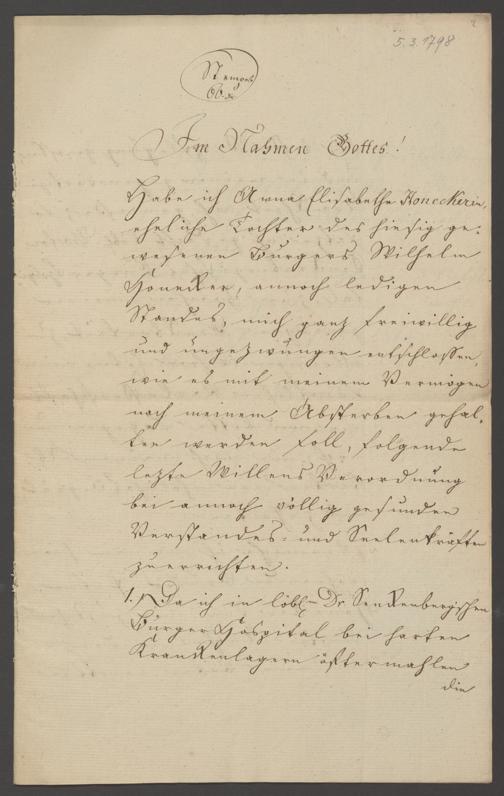 5.3.1798
Im Nahmen Gottes!
Habe ich Anna Elisabetha Honeckerin,
eheliche Tochter des hiesig ge-
wesenen Burgers Wilhelm
Honecker, annoch ledigen
Standes, mich ganz freiwillig
und ungezwungen entschlossen,
wie es mit meinem Vermögen
nach meinem Absterben gehal-
ten werden soll, folgende
lezte Willens Verordnung
bei annoch völlig gesunden
Verstandes- und Seelenkräften
zu errichten.
1. Da ich in löbl. Dr. Senkenbergischen
Burger Hospital bei harten
Krankenlagern öftermahlen
die